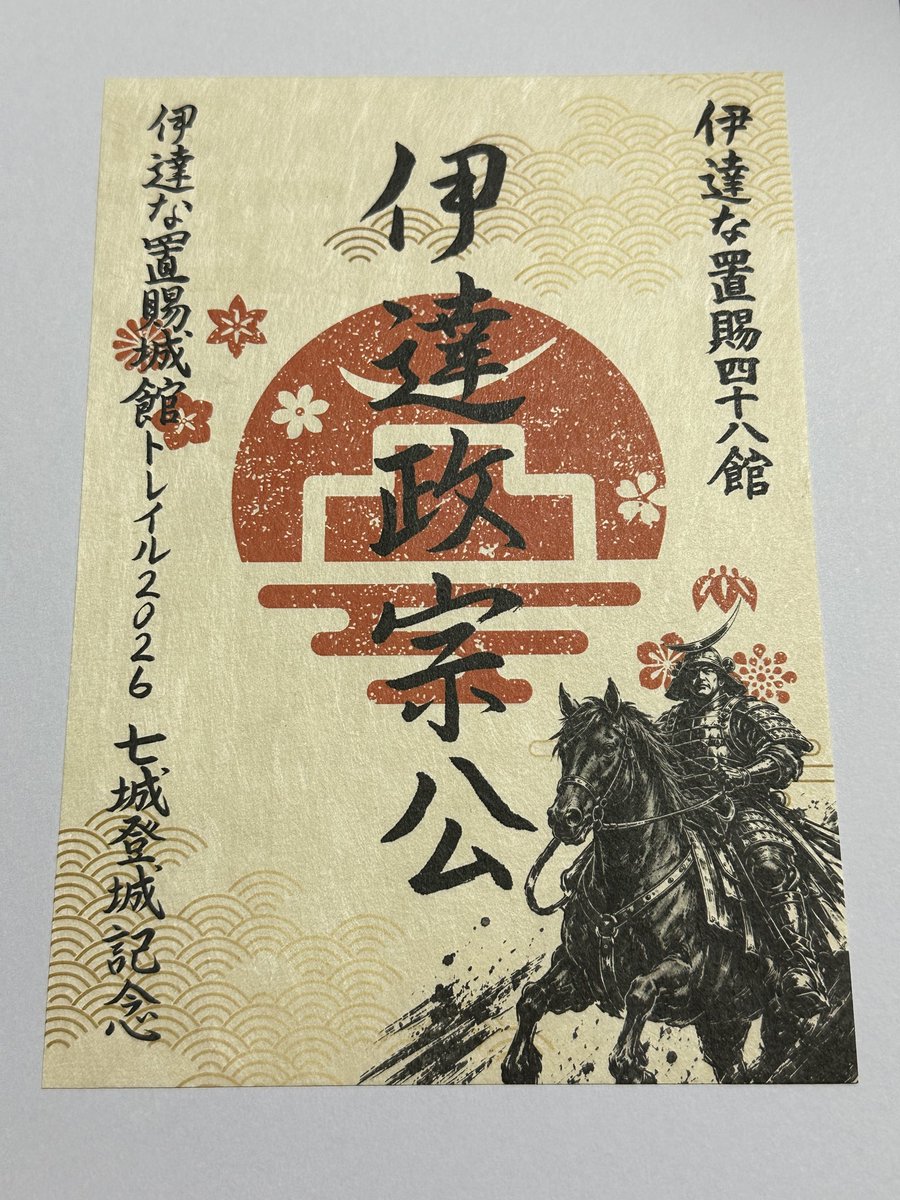 伊達な置賜四十八館
伊達政宗公
伊達な置賜城館トレイル2026 七城登城記念